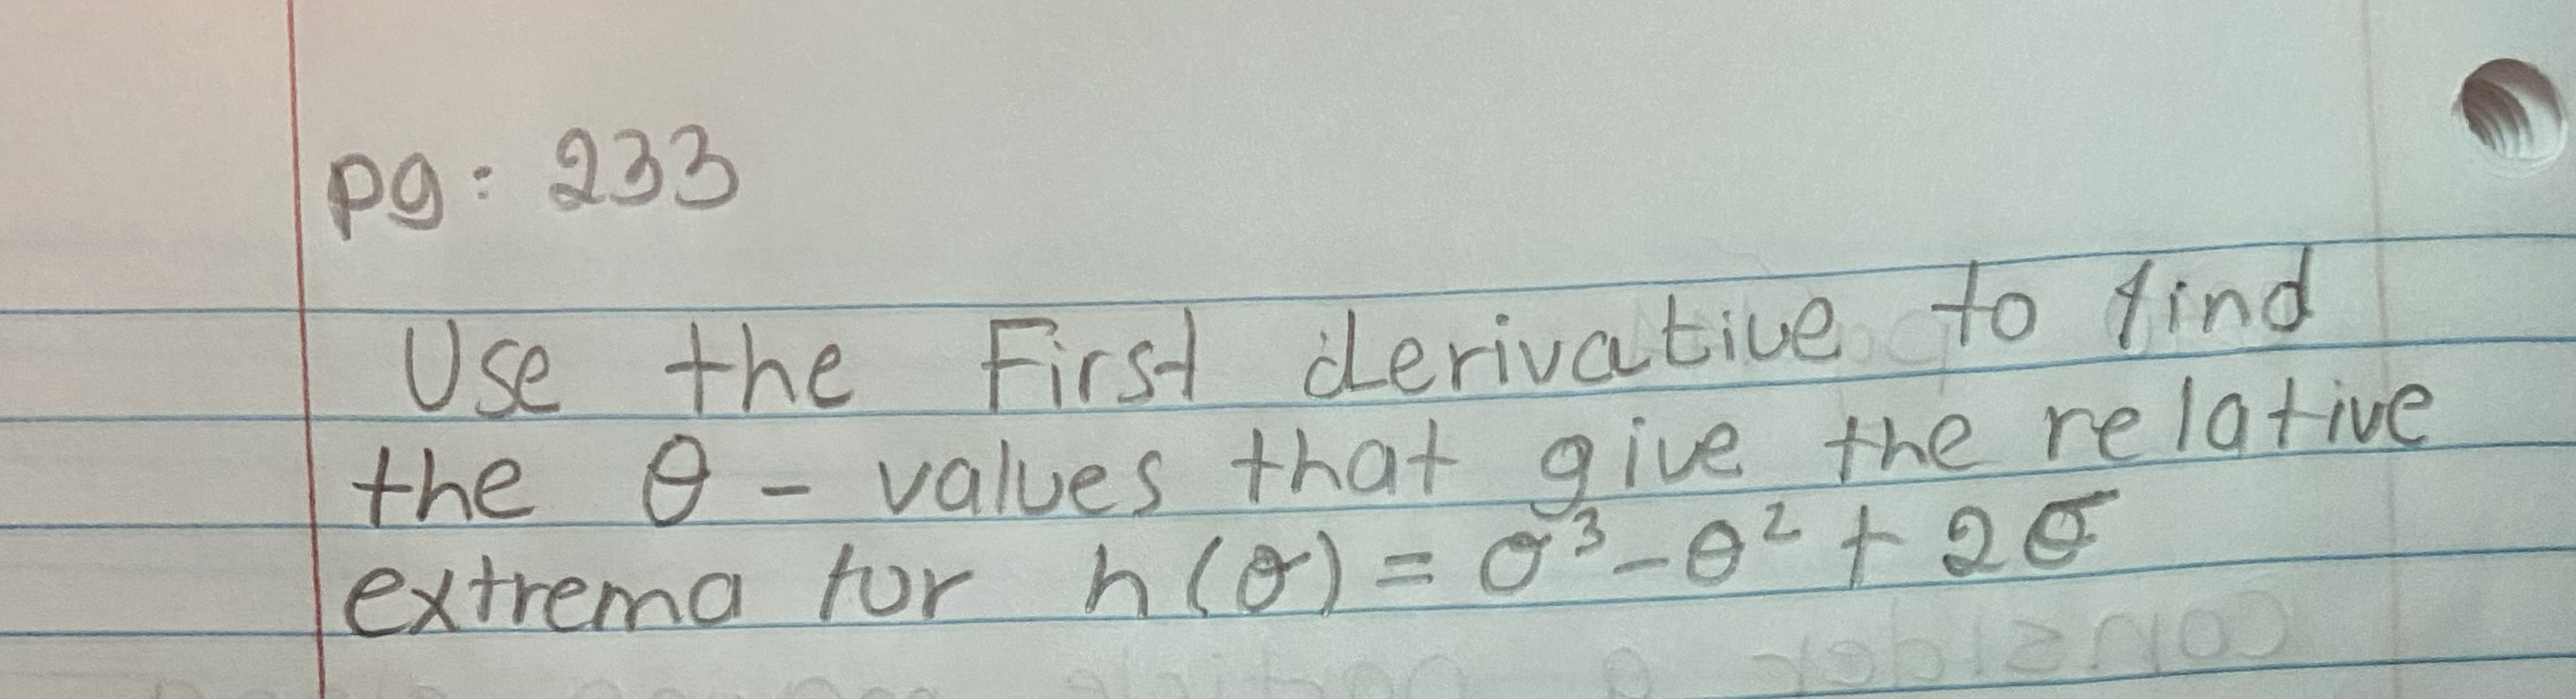 pg: 233
Use the First derivative to find
the θ - values that give the relative
extrema for h(θ) = θ³ - θ² + 2θ